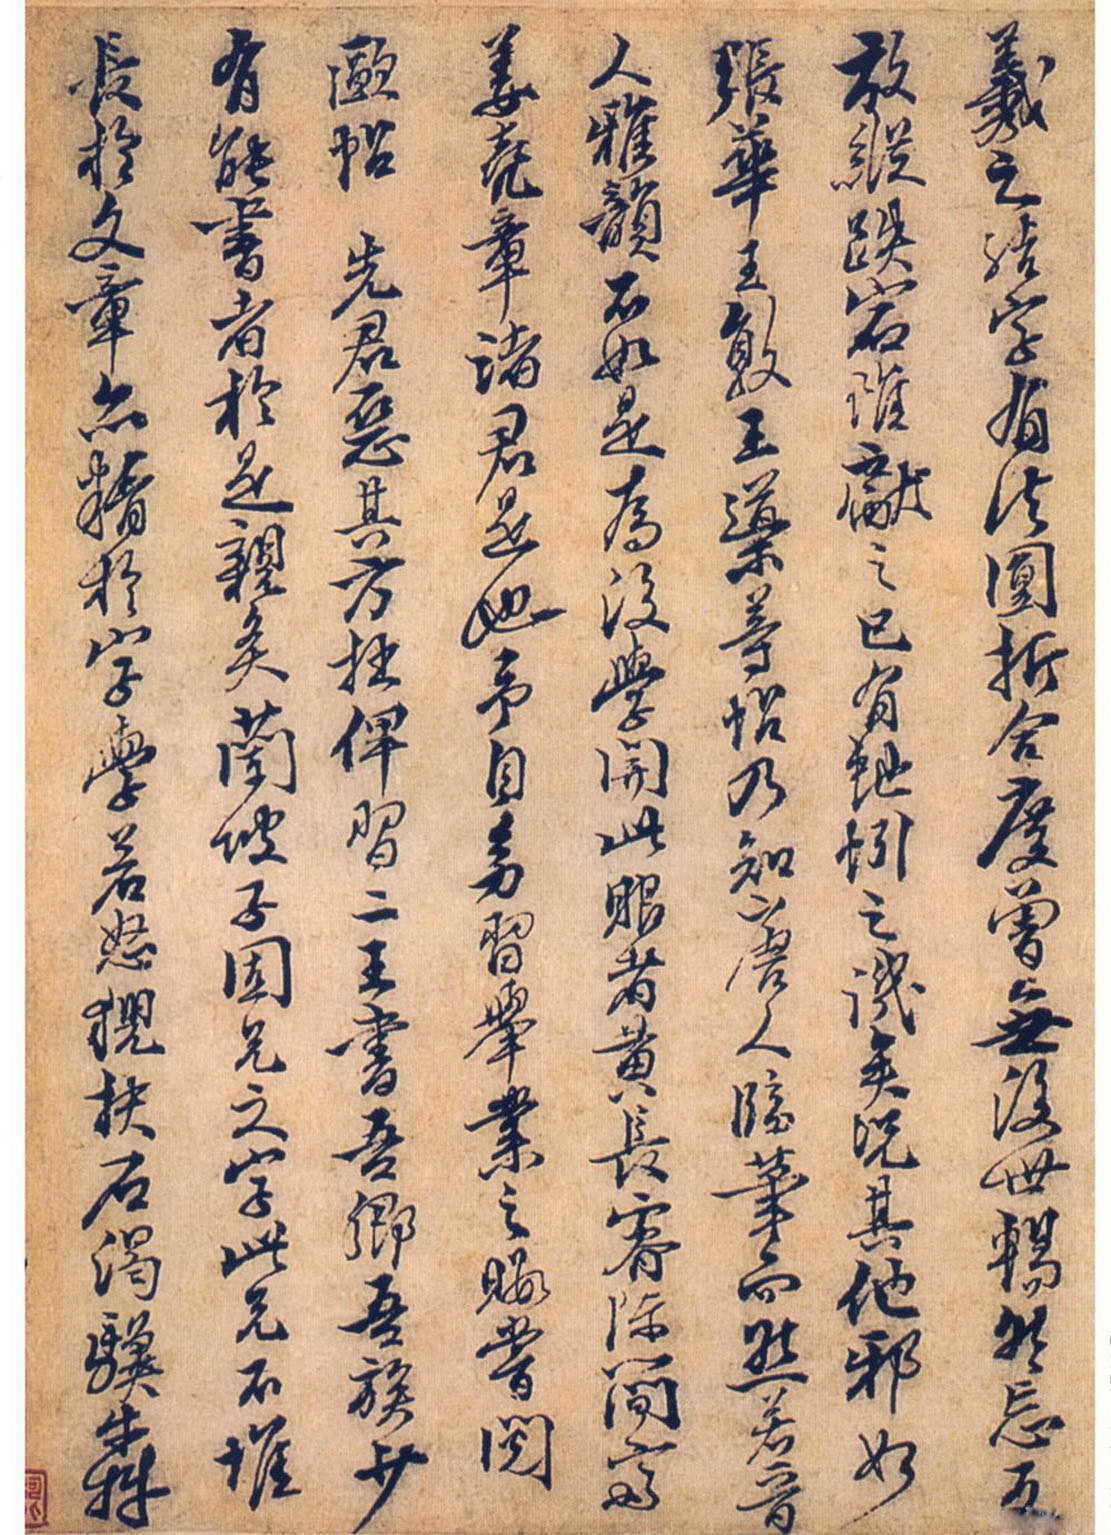 羲之結字有法圓折合度曾無後世暢然忘反
放縱跌宕雖獻之已有虵蚓之譏矣況其他邪如
張華王敦王導等帖乃知唐人臨摹而然若晉
人雅韻不如是為後學開此眼者黃長睿陳簡齋
姜堯章諸君是也予自幼習舉業之暇嘗閱
歐帖 先君惡其方拙俾習二王書吾鄉吾族少
有能書者於是親炙蘭坡子固兄之字此兄不惟
長於文章亦精於字學若怒猊抉石渴驥奔